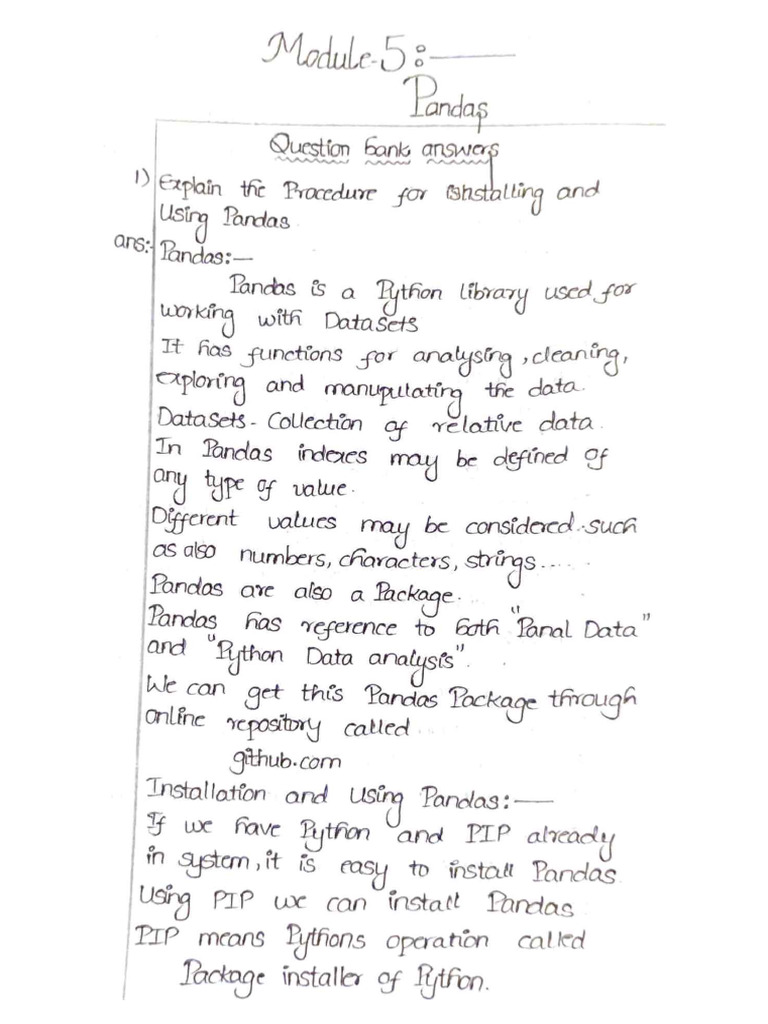 Module-5:-
Pandas
Question bank answers
1) Explain the Procedure for Installing and
Using Pandas
ans:- Pandas:-
Pandas is a Python library used for
working with DataSets
It has functions for analysing, cleaning,
exploring and manupulating the data.
DataSets - Collection of relative data.
In Pandas indexes may be defined of
any type of value.
Different values may be considered such
as also numbers, characters, strings.....
Pandas are also a Package.
Pandas has reference to both "Panal Data"
and "Python Data analysis".
We can get this Pandas Package through
online repository called..
github.com
Installation and Using Pandas:-
If we have Python and PIP already
in system, it is easy to install Pandas
Using PIP we can install Pandas
PIP means Pythons operation called
Package installer of Python.